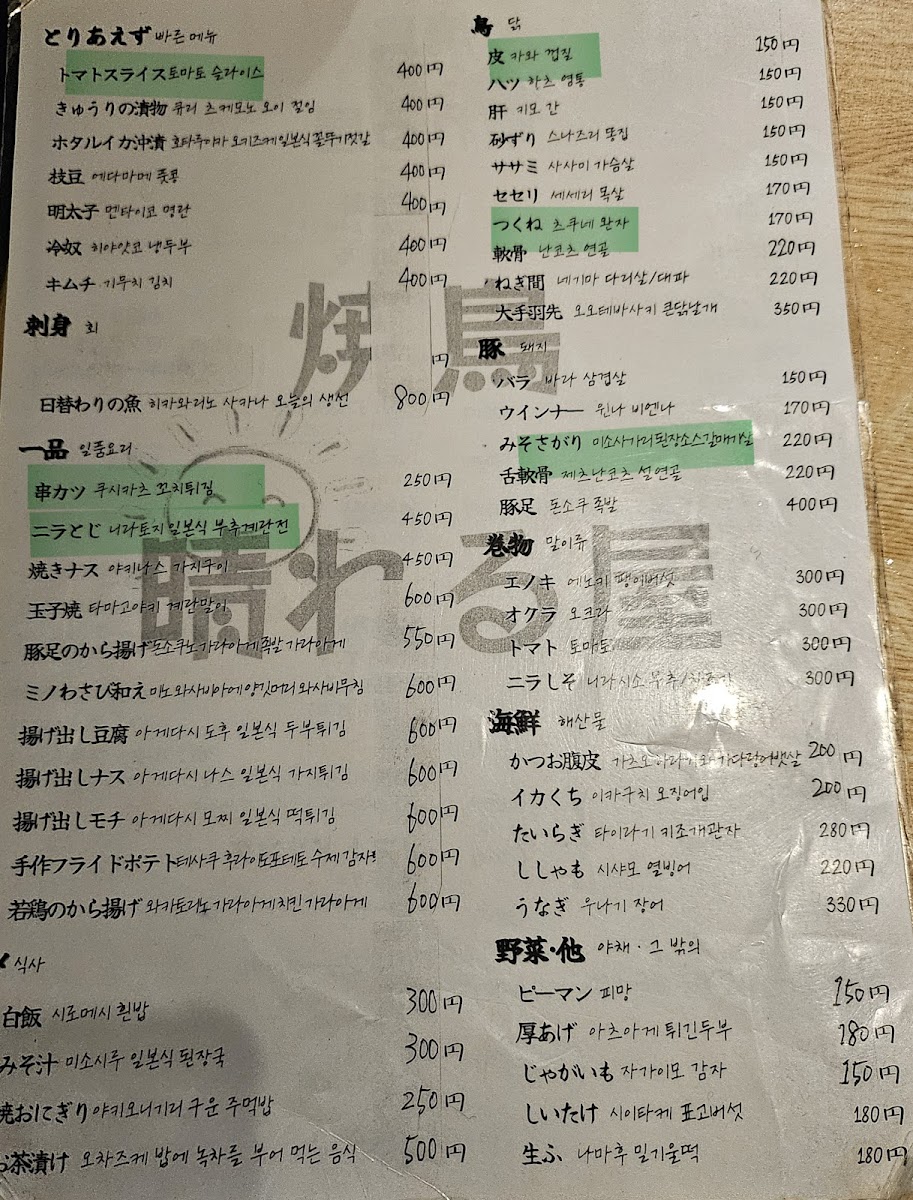 とりあえず 빠른 메뉴
トマトスライス 토마토 슬라이스 400円
きゅうりの漬物 큐리 츠케모노 오이 절임 400円
ホタルイカ沖漬 호타루이카 오키즈케 일본식 꼴뚜기젓갈 400円
枝豆 에다마메 풋콩 400円
明太子 멘타이코 명란 400円
冷奴 히야얏코 냉두부 400円
キムチ 기무치 김치 400円
刺身 회
円
日替わりの魚 히카와리노 사카나 오늘의 생선 800円
一品 일품요리
串カツ 쿠시카츠 꼬치튀김 250円
ニラとじ 니라토지 일본식 부추계란전 450円
焼きナス 야키나스 가지구이 450円
玉子焼 타마고야키 계란말이 600円
豚足のから揚げ 돈소쿠노가라아게 족발 가라아게 550円
ミノわさび和え 미노 와사비아에 양깃머리 와사비무침 600円
揚げ出し豆腐 아게다시 도후 일본식 두부튀김 600円
揚げ出しナス 아게다시 나스 일본식 가지튀김 600円
揚げ出しモチ 아게다시 모찌 일본식 떡튀김 600円
手作フライドポテト 테사쿠 후라이도포테토 수제 감자 600円
若鶏のから揚げ 와카토리노 가라아게 치킨 가라아게 600円
식사
白飯 시로메시 흰밥 300円
みそ汁 미소시루 일본식 된장국 300円
焼おにぎり 야키오니기리 구운 주먹밥 250円
お茶漬け 오차즈케 밥에 녹차를 부어 먹는 음식 500円
鳥 닭
皮 카와 껍질 150円
ハツ 하츠 염통 150円
肝 키모 간 150円
砂ずり 스나즈리 똥집 150円
ササミ 사사미 가슴살 150円
セセリ 세세리 목살 170円
つくね 츠쿠네 완자 170円
軟骨 난코츠 연골 220円
ねぎ間 네기마 다리살/대파 220円
大手羽先 오오테바사키 큰닭날개 350円
豚 돼지
バラ 바라 삼겹살 150円
ウインナー 윈나 비엔나 170円
みそさがり 미소사가리 된장소스갈매기살 220円
舌軟骨 제츠난코츠 설연골 220円
豚足 돈소쿠 족발 400円
巻物 말이류
エノキ 에노키 팽이버섯 300円
オクラ 오크라 300円
トマト 토마토 300円
ニラしそ 니라시소 부추/차조기 300円
海鮮 해산물
かつお腹皮 가츠오하라가와 가다랑어뱃살 200円
イカくち 이카구치 오징어입 200円
たいらぎ 타이라기 키조개관자 280円
ししゃも 시샤모 열빙어 220円
うなぎ 우나기 장어 330円
野菜・他 야채·그 밖의
ピーマン 피망 150円
厚あげ 아츠아게 튀긴두부 180円
じゃがいも 자가이모 감자 150円
しいたけ 시이타케 표고버섯 180円
生ふ 나마후 밀기울떡 180円
焼鳥
晴れる屋